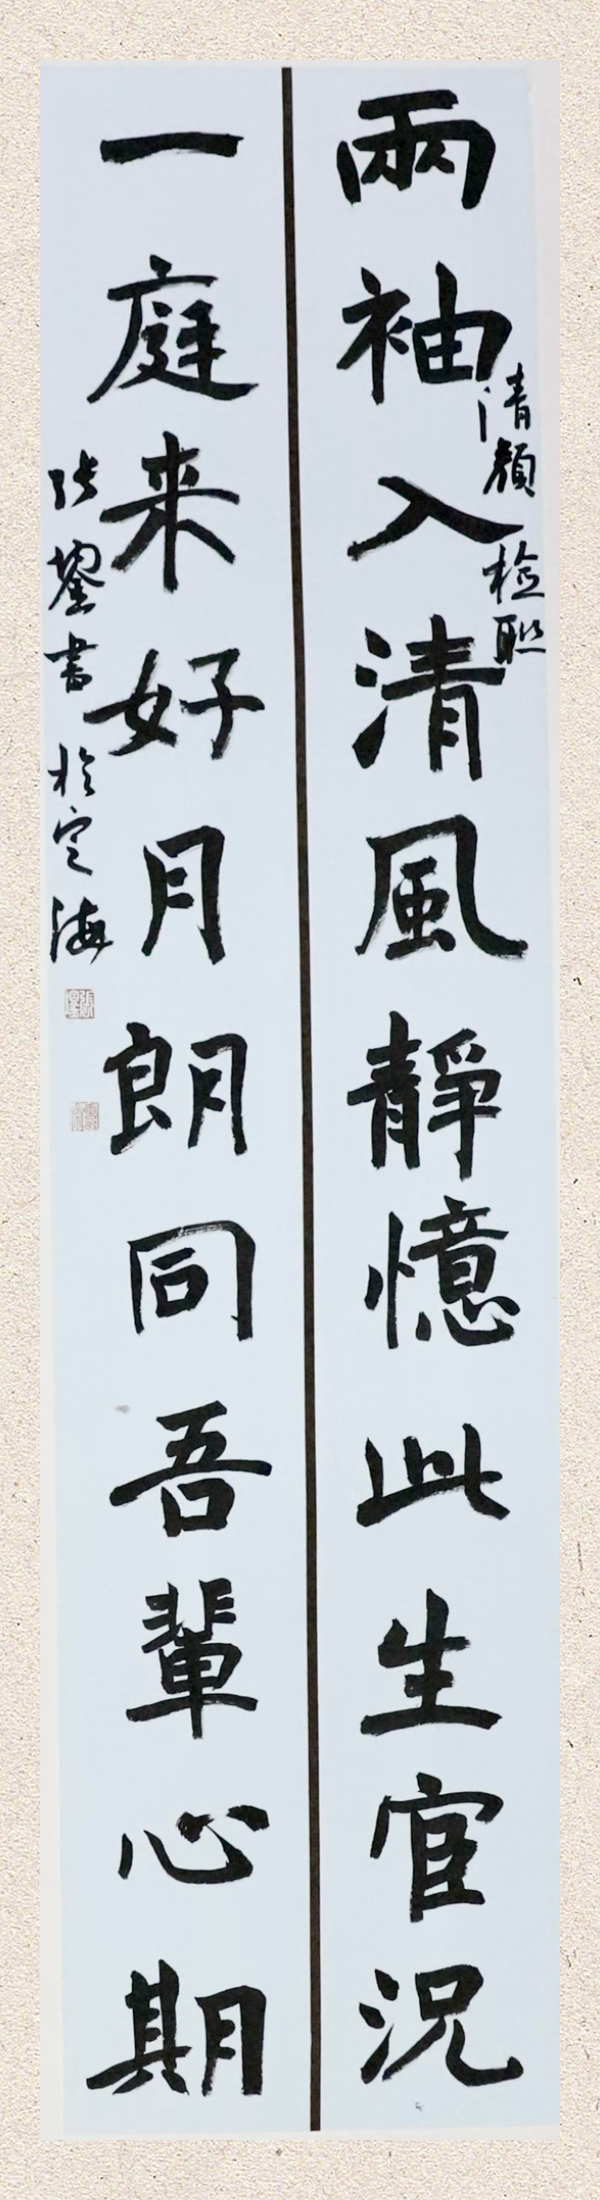 兩袖入清風靜憶此生官況
清顏檢聯
一庭来好月朗同吾輩心期
張鋆書於定海